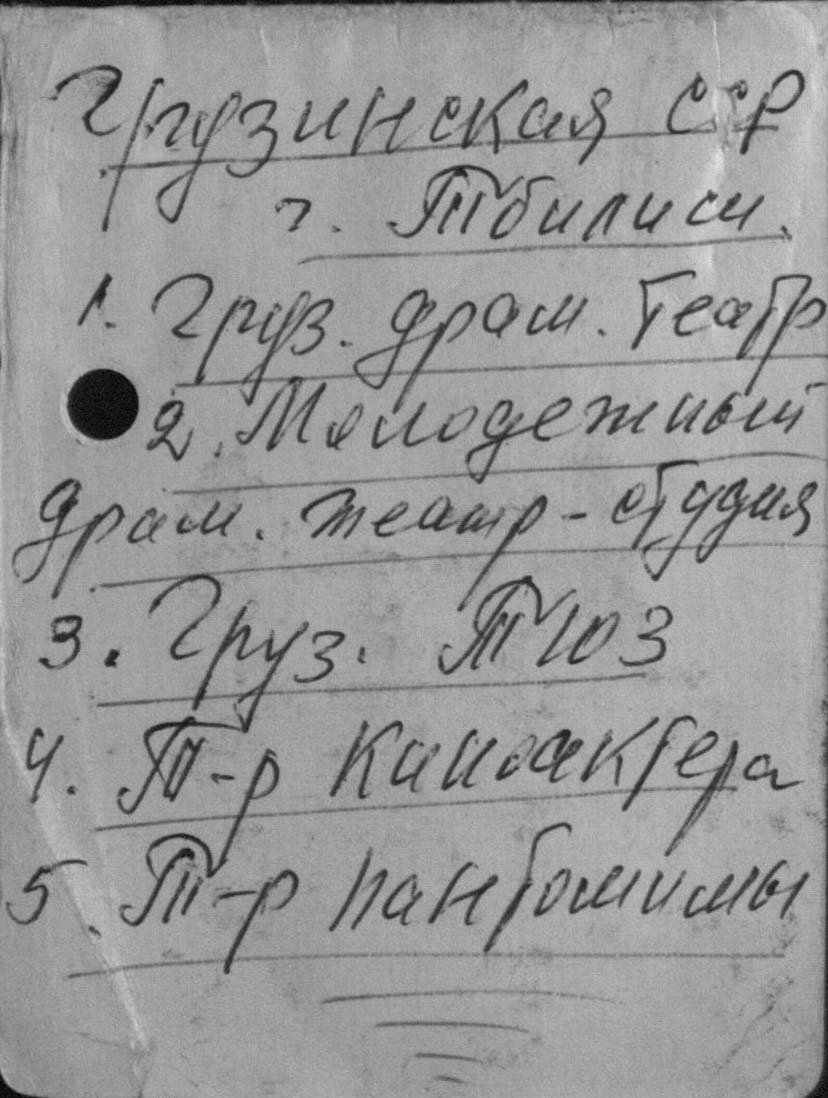 Грузинская ССР
г. Тбилиси.
1. Груз. драм. театр
2. Молодежный
драм. театр-студия
3. Груз. ТЮЗ
4. Т-р Киноактера
5. Т-р пантомимы